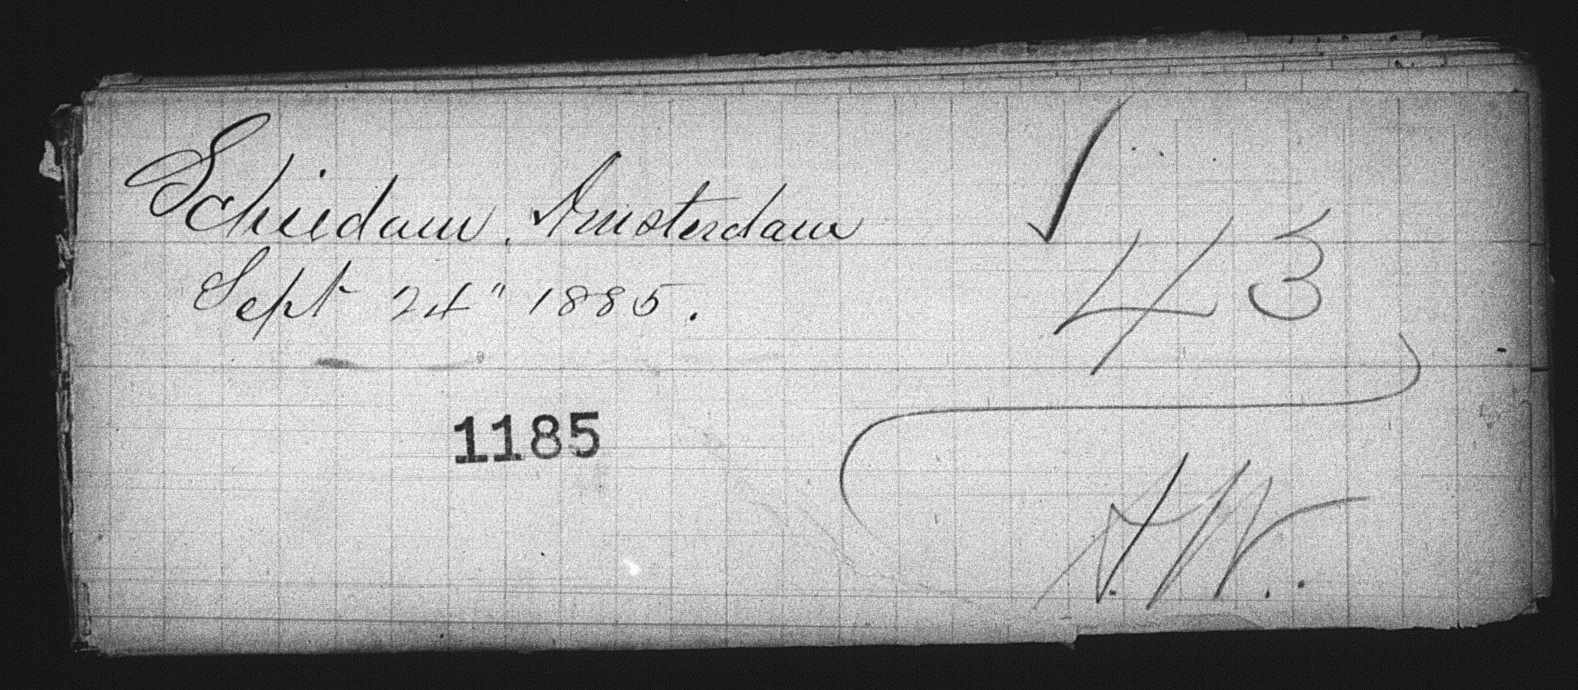 Schiedam, Amsterdam
Sept 24" 1885.
43
1185
A.W.